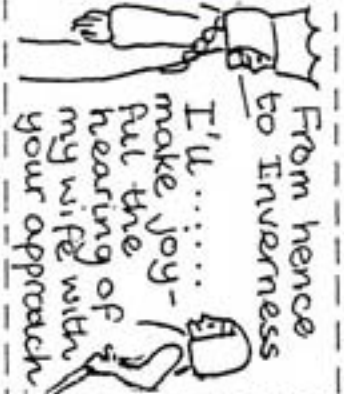 From hence
to Inverness
I'll.......
make joy-
ful the
hearing of
my wife with
your approach